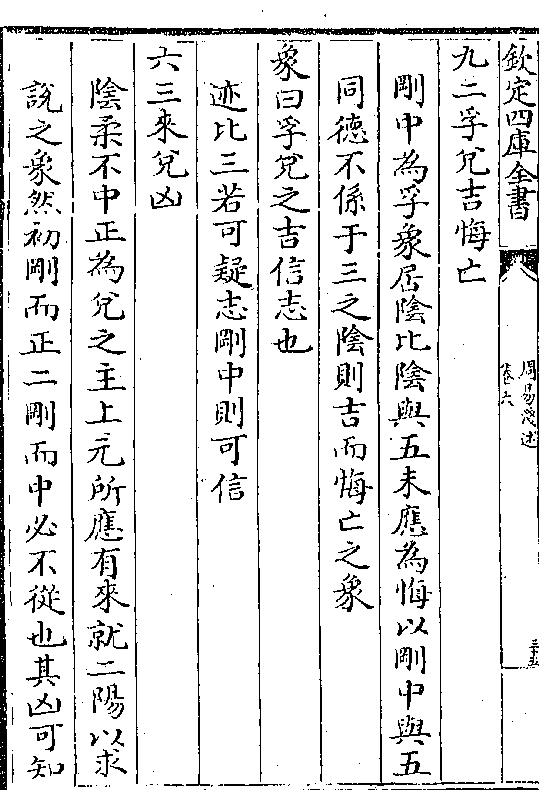 欽定四庫全書
周易淺述
卷六
三十五
九二孚兌吉悔亡
剛中為孚象居陰比陰與五未應為悔以剛中與五
同德不係于三之陰則吉而悔亡之象
象曰孚兌之吉信志也
迹比三若可疑志剛中則可信
六三來兌凶
陰柔不中正為兌之主上元所應有來就二陽以求
說之象然初剛而正二剛而中必不從也其凶可知